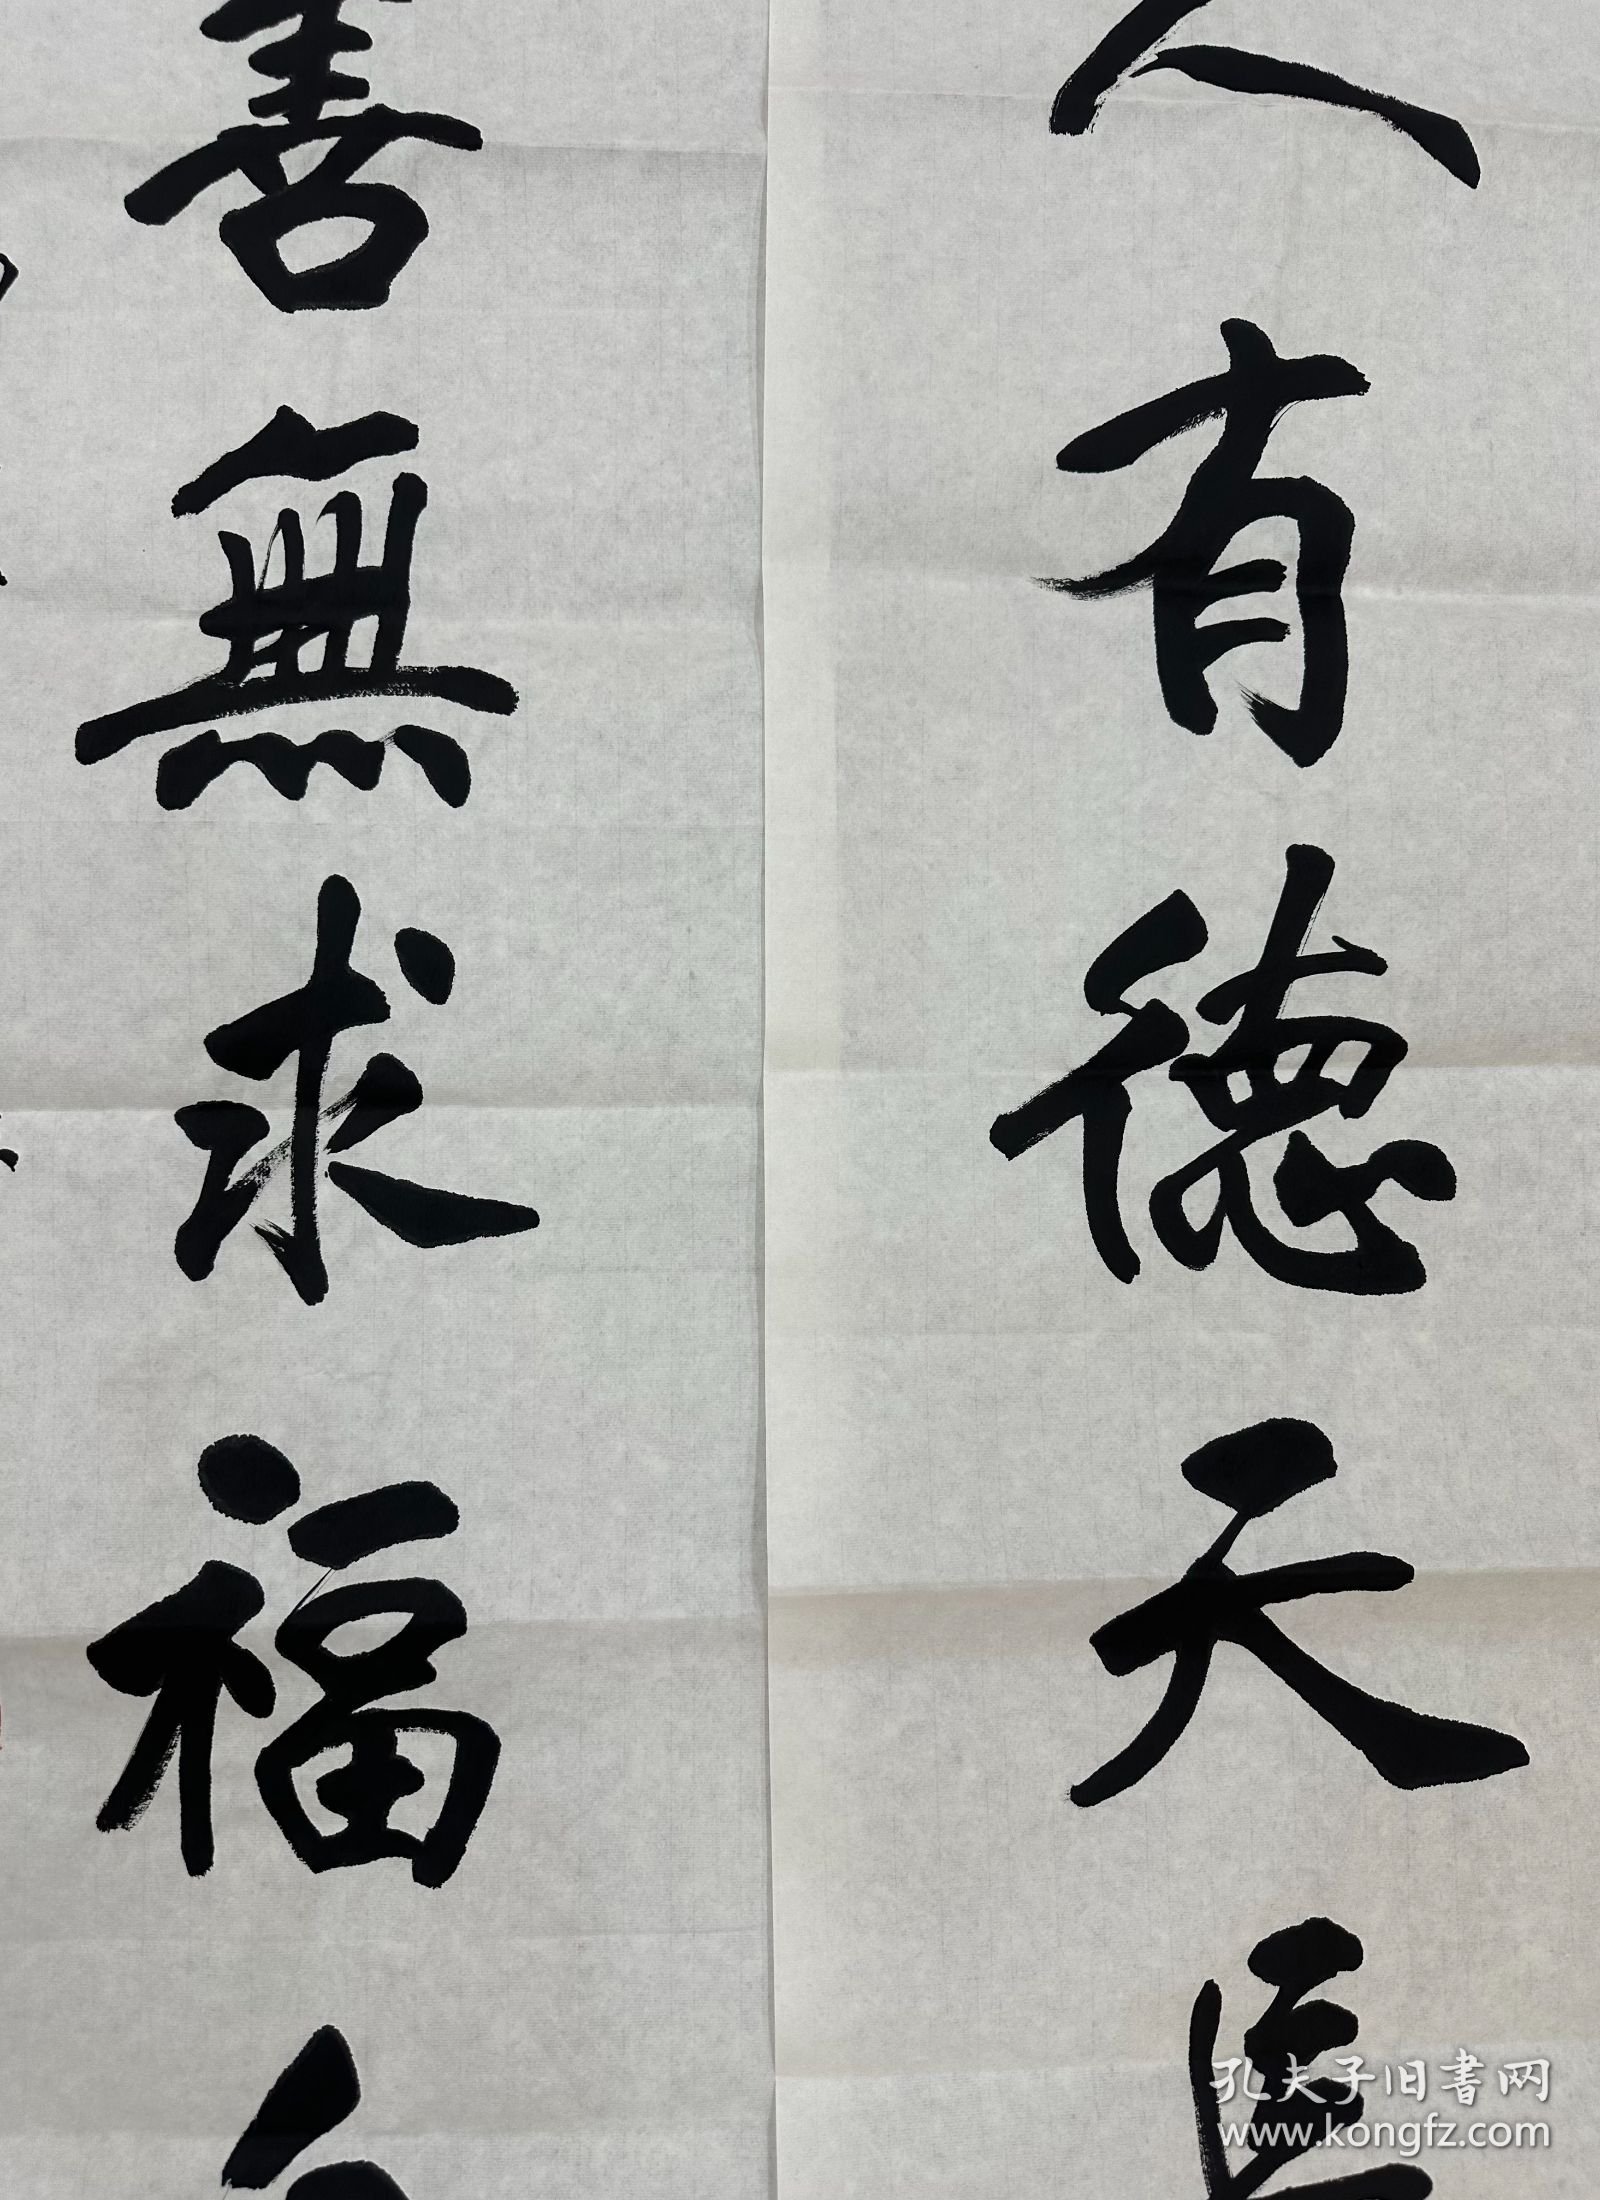 人有德天
善無求福
孔夫子旧書网
www.kongfz.com